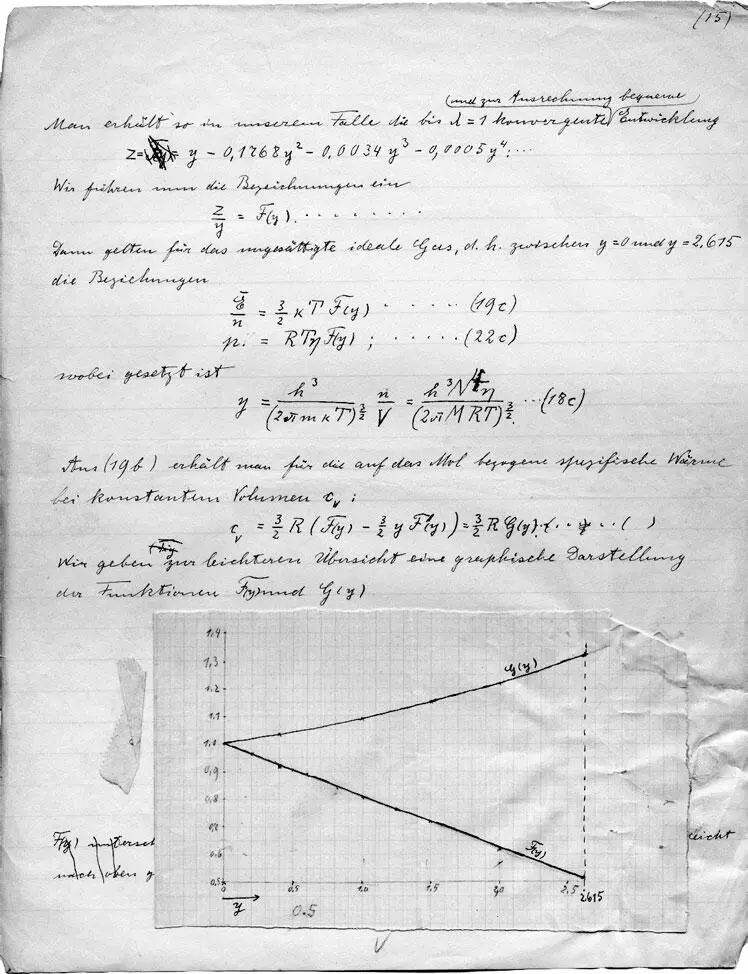 (15)
(und zur Ausrechnung bequeme
Man erhält so in unserem Falle die bis λ = 1 konvergente Entwicklung
z = y − 0,1768 y² − 0,0034 y³ − 0,0005 y⁴ ; ...
Wir führen nun die Bezeichnungen ein
z/y = F(y) . . . . . . . .
Dann gelten für das ungesättigte ideale Gas, d. h. zwischen y = 0 und y = 2,615
die Beziehungen
Ē/n = 3/2 κ T F(y) . . . . . (19c)
p. = R T η F(y) ; . . . . . (22c)
wobei gesetzt ist
y = h³/(2π m κ T)^3/2 n/V = h³ N⁴ η/(2π M R T)^3/2 . ... (18c)
Aus (19b) erhält man für die auf das Mol bezogene spezifische Wärme
bei konstantem Volumen c_v :
c_v = 3/2 R (F(y) − 2/3 y F'(y)) = 3/2 R G(y) . . . . . ( )
Wir geben zur leichteren Übersicht eine graphische Darstellung
der Funktionen F(y) und G(y)
1,4
1,3
1.2
1.1
1.0
0,9
0,8
0,7
0.6
0,5
G(y)
F(y)
0
0.5
1.0
1.5
2,0
2,5
2.615
y
0.5
F(y) untersch
leicht
nach oben g